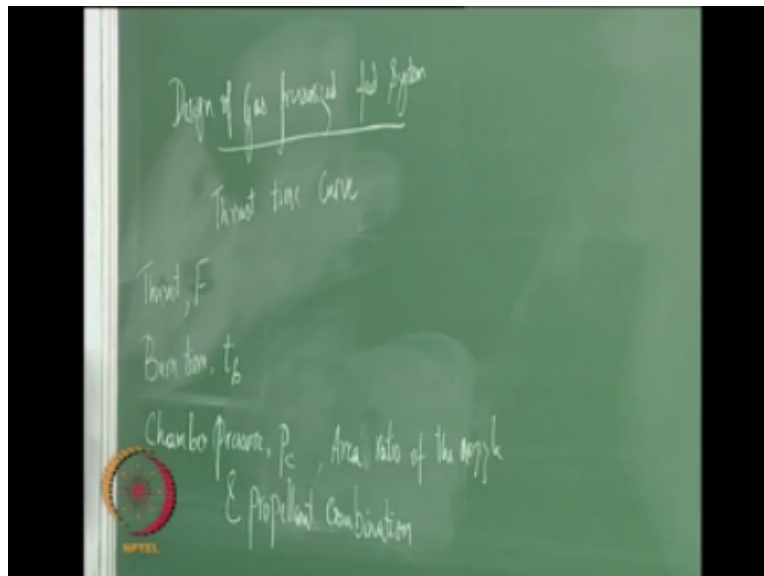 Design of Gas pressurized fed System
Thrust time Curve
Thrust, F
Burn time, t_b
Chamber pressure, P_c, Area ratio of the nozzle
& propellant Combination
NPTEL